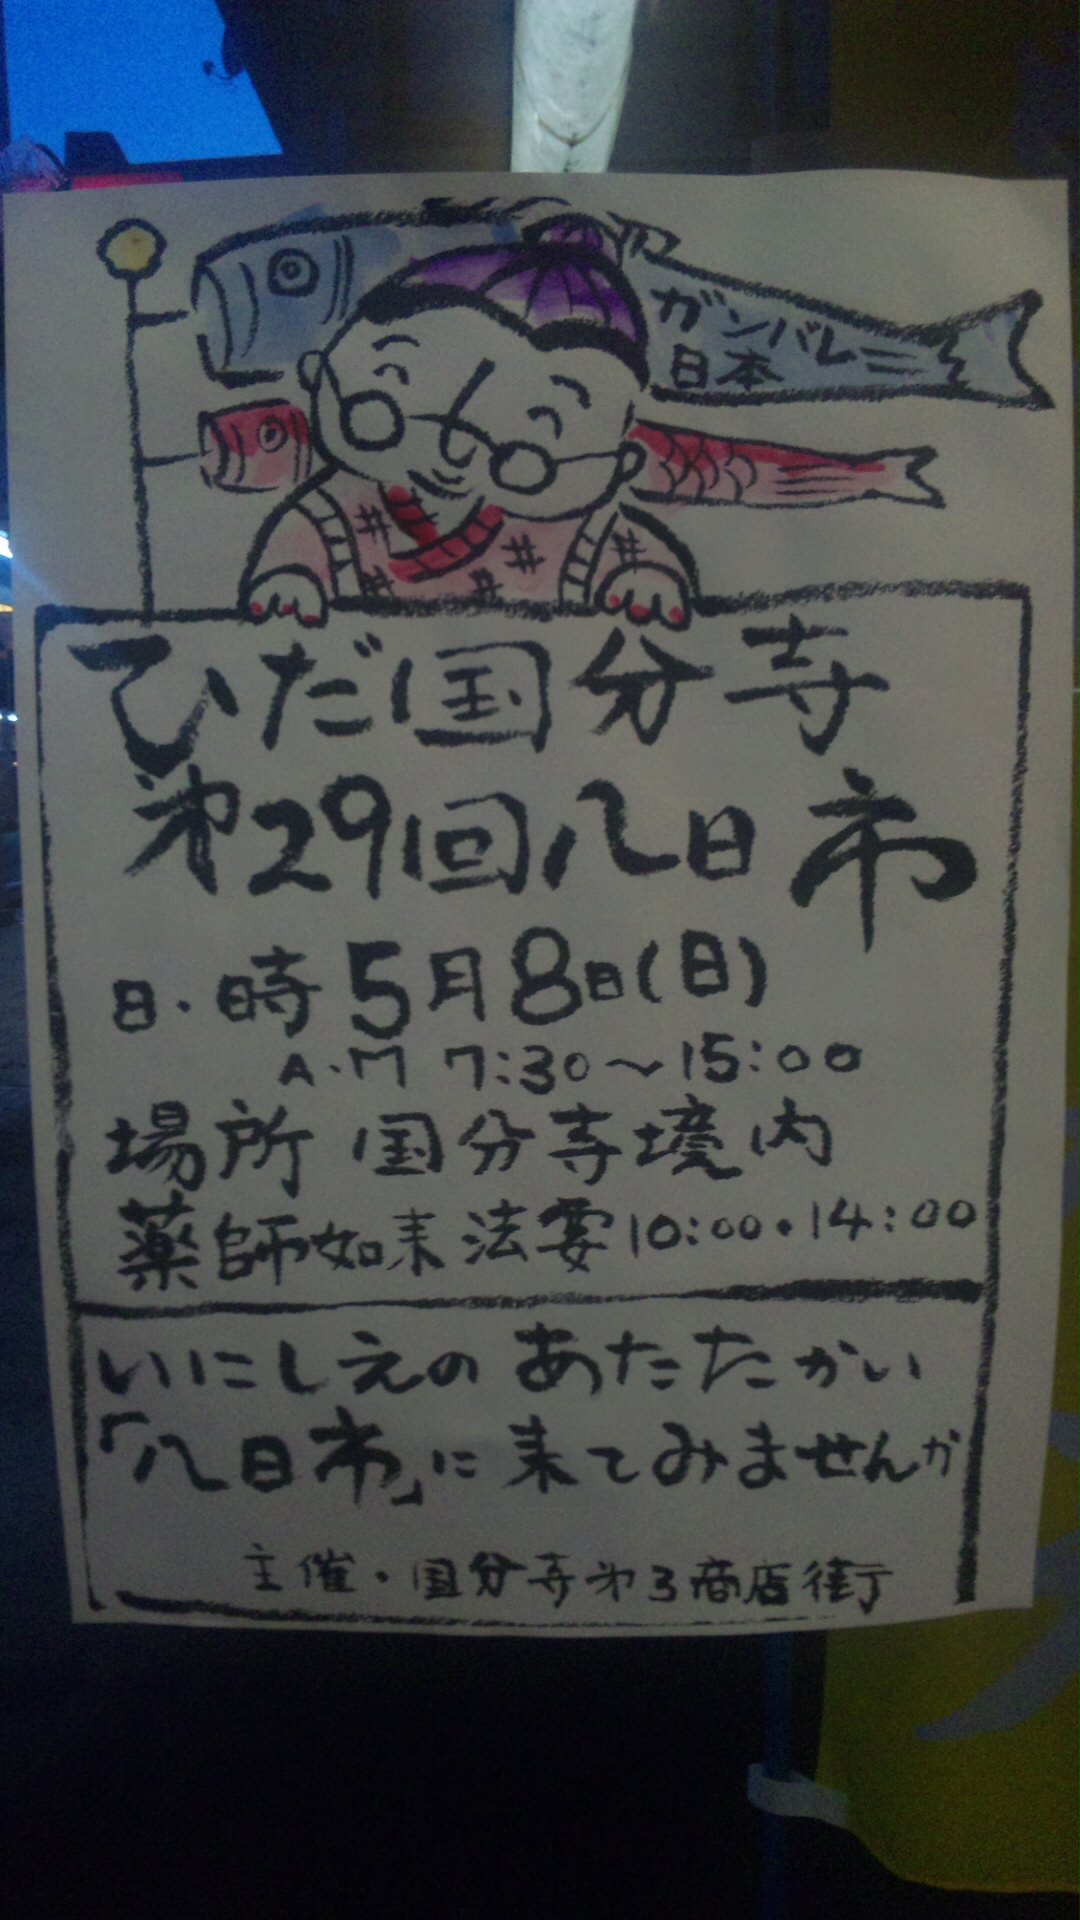 ガンバレ
日本
ひだ国分寺
第29回八日市
日・時 5月8日(日)
A・M 7:30〜15:00
場所 国分寺境内
薬師如来法要10:00・14:00
いにしえの あたたかい
「八日市」に来てみませんか
主催・国分寺第3商店街